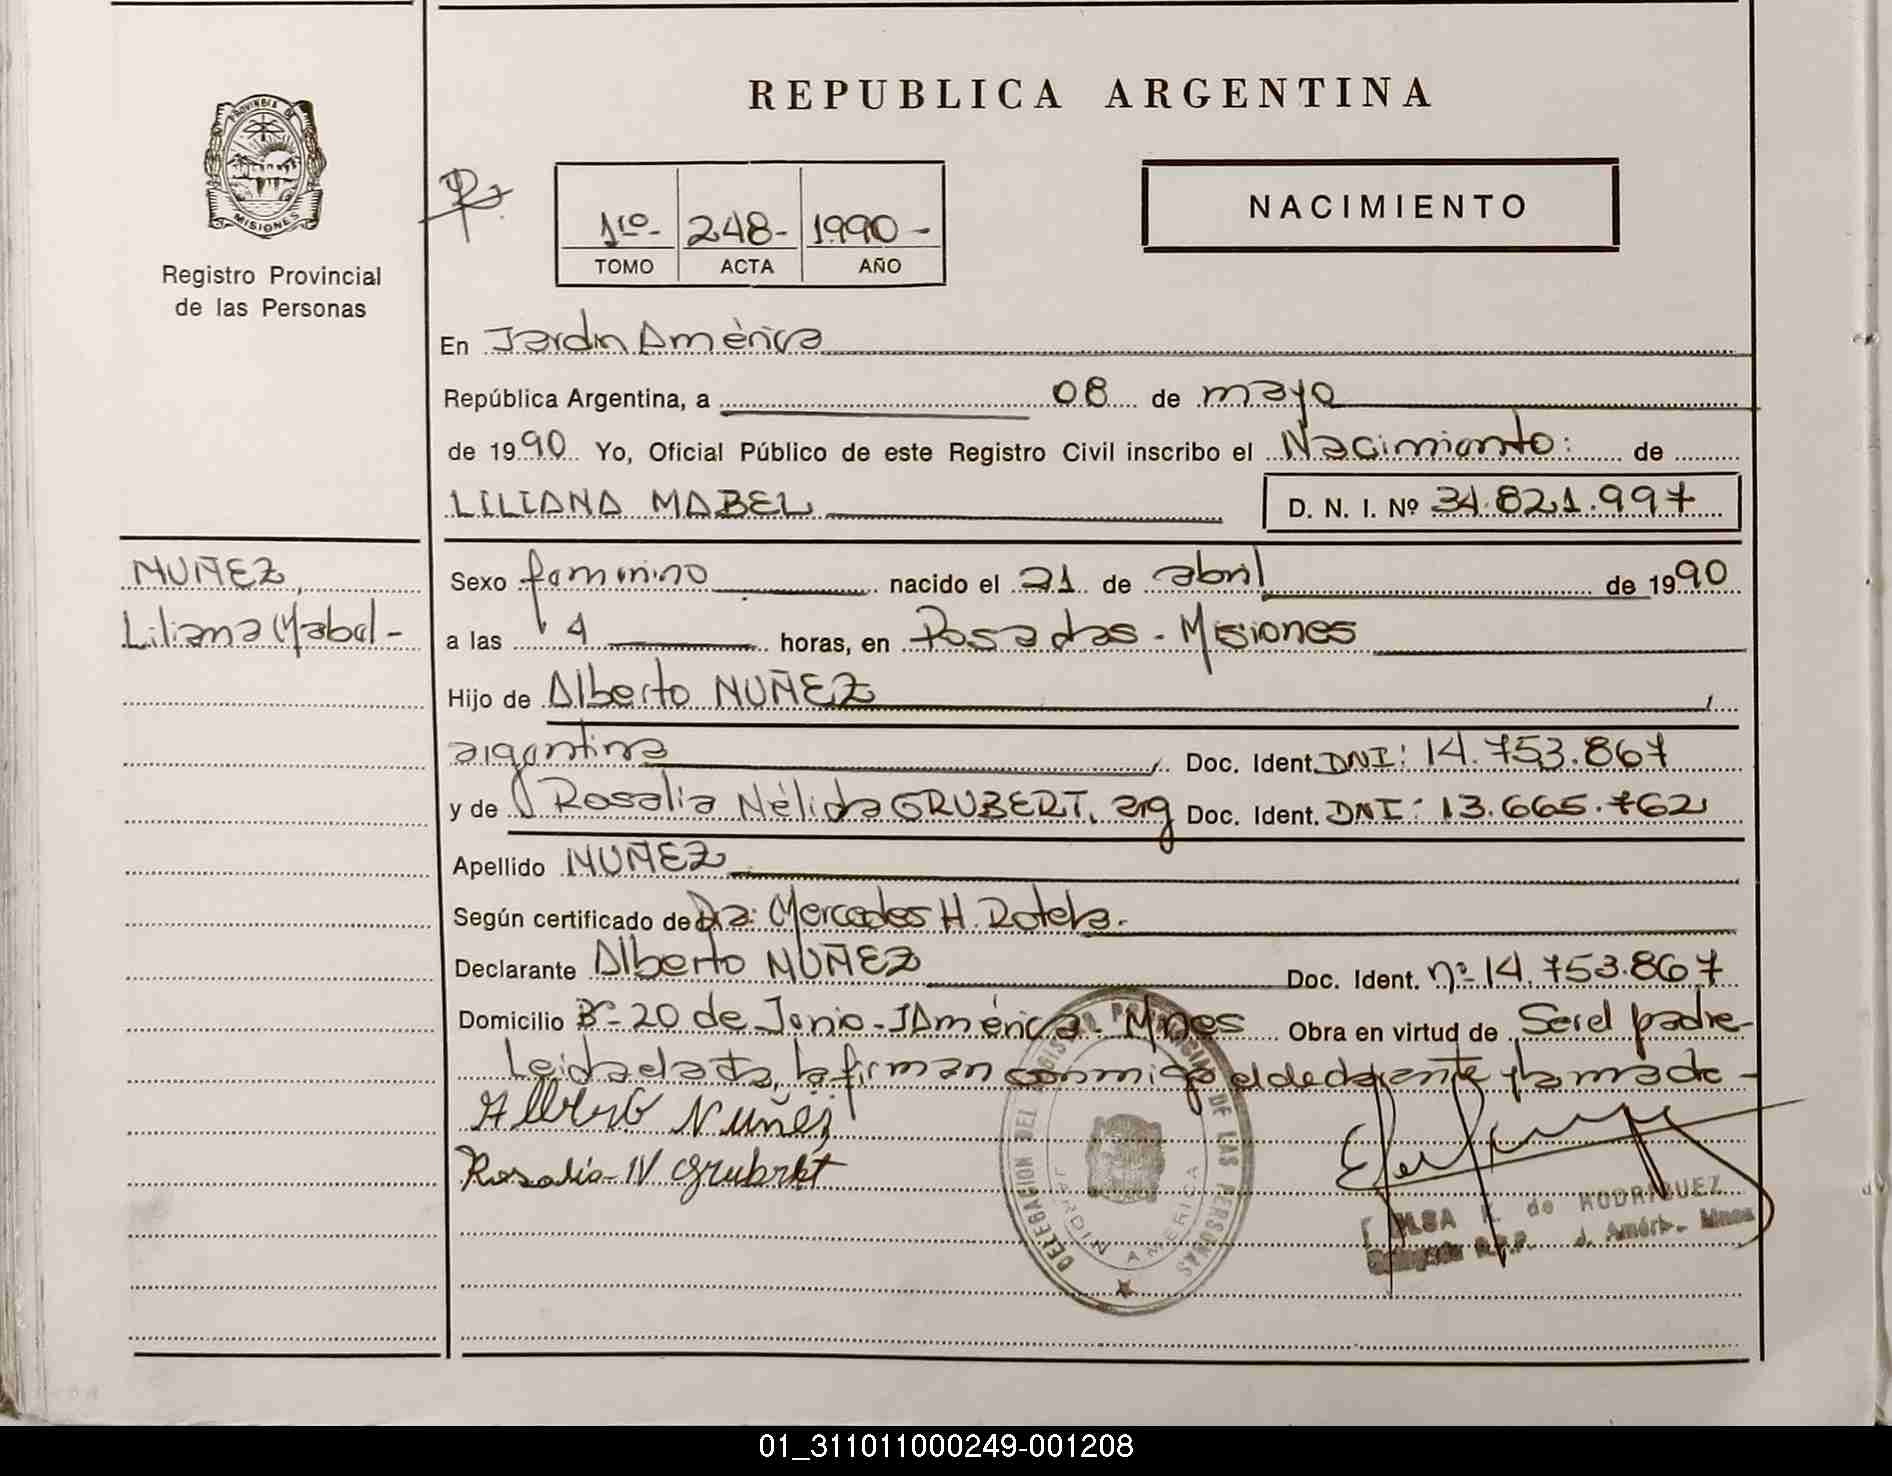 REPUBLICA ARGENTINA
PROVINCIA DE
MISIONES
Registro Provincial
de las Personas
1ro- 248- 1990-
TOMO ACTA AÑO
NACIMIENTO
En Jardin América
República Argentina, a 08 de mayo
de 1990 Yo, Oficial Público de este Registro Civil inscribo el Nacimiento: de
LILIANA MABEL D. N. I. Nº 34.821.997
NUÑEZ,
Liliana Mabel-
Sexo femenino nacido el 21 de abril de 1990
a las 4 horas, en Posadas - Misiones
Hijo de Alberto NUÑEZ,
argentina, Doc. Ident. DNI: 14.753.867
y de Rosalia Nélida GRUBERT, arg Doc. Ident. DNI: 13.665.762
Apellido NUÑEZ
Según certificado de Dra: Mercedes H. Rotela.
Declarante Alberto NUÑEZ Doc. Ident. nº 14.753.867
Domicilio Bº-20 de Junio-JAmérica-Mnes Obra en virtud de Ser el padre-
Leida el acta, la firman conmigo el declarante y la madre-
Alberto Nuñez
Rosalia N Grubert
DELEGACION DEL REGISTRO PROVINCIAL DE LAS PERSONAS
JARDIN AMERICA
ELSA de RODRIGUEZ
Delegada R.P.P. J. Améric- Mnes
01_311011000249-001208